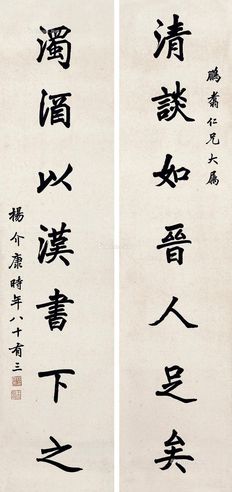 鹏翥仁兄大属
清談如晉人足矣
濁酒以漢書下之
楊介康時年八十有三